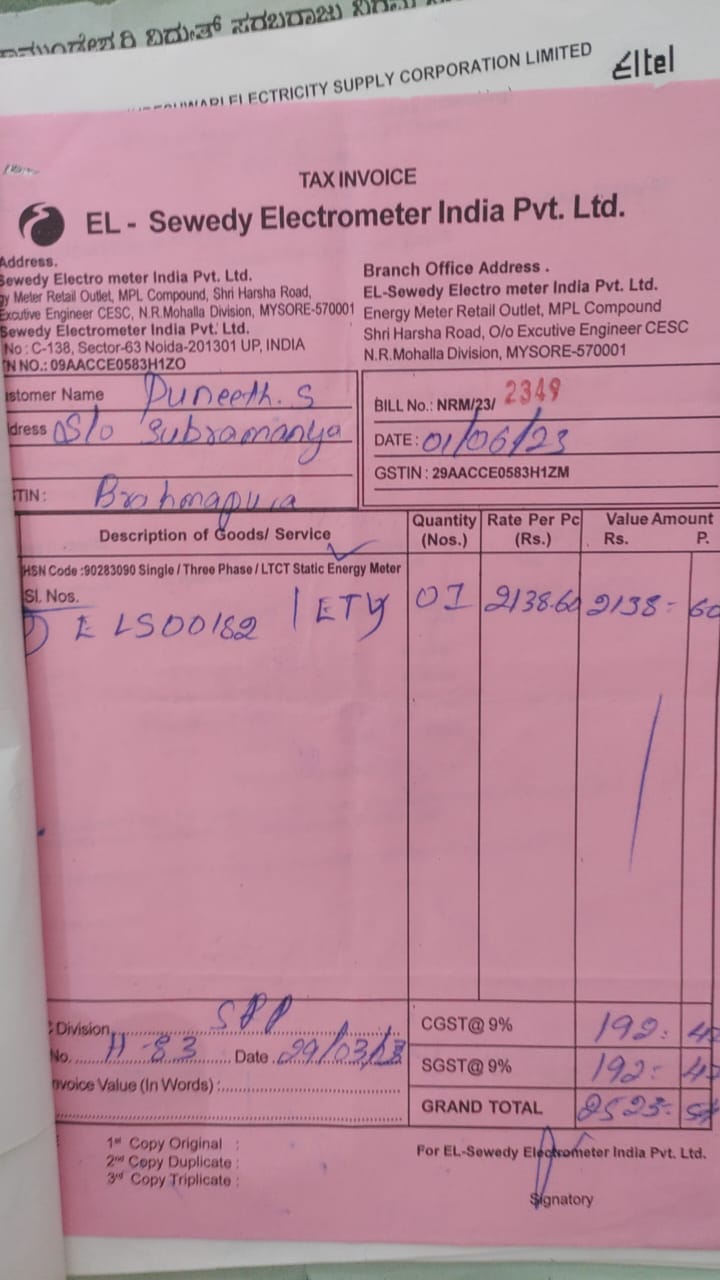 ವಿದ್ಯುತ್ ಸರಬರಾಜು
ELECTRICITY SUPPLY CORPORATION LIMITED
Eltel
TAX INVOICE
EL - Sewedy Electrometer India Pvt. Ltd.
Address.
Sewedy Electro meter India Pvt. Ltd.
gy Meter Retail Outlet, MPL Compound, Shri Harsha Road,
Excutive Engineer CESC, N.R.Mohalla Division, MYSORE-570001
Sewedy Electrometer Pvt. Ltd.
No : C-138, Sector-63 Noida-201301 UP, INDIA
TN NO.: 09AACCE0583H1ZO
Branch Office Address .
EL-Sewedy Electro meter India Pvt. Ltd.
Energy Meter Retail Outlet, MPL Compound
Shri Harsha Road, O/o Excutive Engineer CESC
N.R.Mohalla Division, MYSORE-570001
stomer Name Puneeth. S
dress S/o Subramanya
TIN : Brahmapura
BILL No.: NRM/23/ 2349
DATE : 01/06/23
GSTIN : 29AACCE0583H1ZM
Description of Goods/ Service Quantity (Nos.) Rate Per Pc (Rs.) Value Amount Rs. P.
HSN Code :90283090 Single / Three Phase / LTCT Static Energy Meter
Sl. Nos.
1) ELS00182 1 ETV 01 2138.60 2138- 60
Division SPP
No. H-83 Date 29/03/
nvoice Value (In Words) :
CGST@ 9% 192.
SGST@ 9% 192-
GRAND TOTAL 2523-
1st Copy Original :
2nd Copy Duplicate :
3rd Copy Triplicate :
For EL-Sewedy Electrometer India Pvt. Ltd.
Signatory